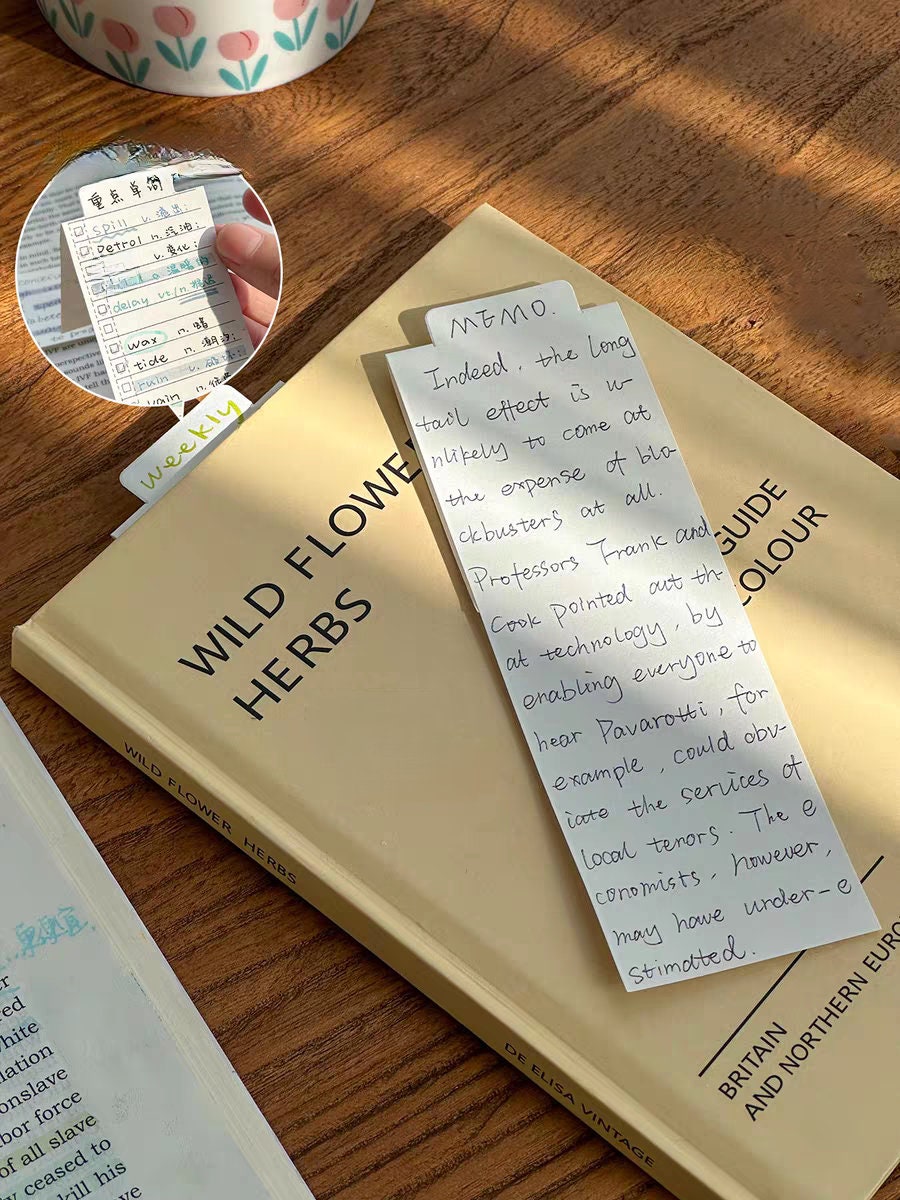 重点单词
spill v. 溢出;
petrol n. 汽油;
v. 变化;
a 温暖的
delay vt/n. 推迟
wax n. 蜡
tide n. 潮汐;
ruin v. 破坏;
weekly
MEMO.
Indeed, the long
tail effect is u-
nlikely to come at
the expense of blo-
ckbusters at all.
Professors Frank and
Cook pointed out th-
at technology, by
enabling everyone to
hear Pavarotti, for
example, could obv-
iate the services of
local tenors. The e
conomists, however,
may have under-e
stimated.
WILD FLOWE
HERBS
GUIDE
COLOUR
BRITAIN
AND NORTHERN EURO
WILD FLOWER HERBS
DE ELISA VINTAGE
r
red
white
lation
onslave
bor force
of all slave
y ceased to
kill his
ve